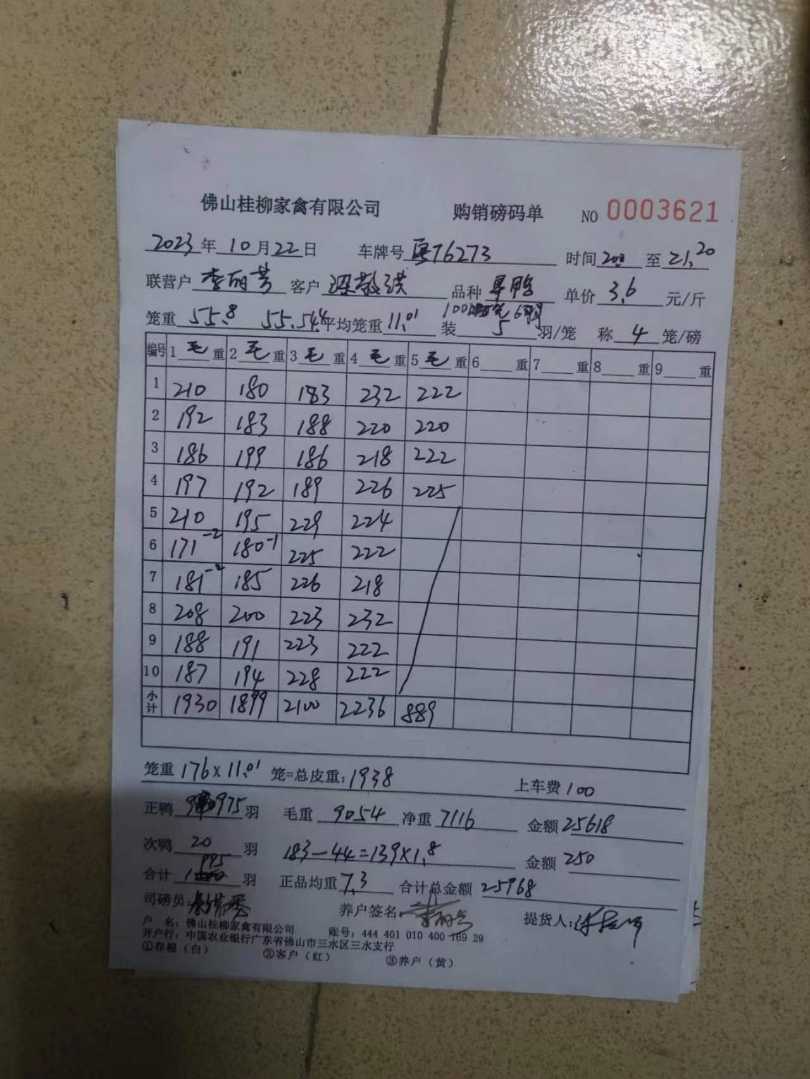 佛山桂柳家禽有限公司 购销磅码单 NO 0003621
2023年10月22日 车牌号 粤 76273 时间 至 21.20
联营户 李丽芳 客户 品种 单价 3.6 元/斤
笼重 55.8 55.54.4 平均笼重 11.01 装 5 羽/笼 称 4 笼/磅
编号 1 毛 重 2 毛 重 3 毛 重 4 毛 重 5 毛 重 6 重 7 重 8 重 9 重
1 210 180 183 232 222
2 192 183 188 220 220
3 186 199 186 218 222
4 197 192 189 226 225
5 210 195 229 224
6 171-2 180-1 225 222
7 181-2 185 226 218
8 208 200 223 232
9 188 191 223 222
10 187 194 228 222
小计 1930 1899 2100 2236 889
笼重 176×11.01 笼=总皮重: 1938 上车费 100
正鸭 975 羽 毛重 9054 净重 7116 金额 25618
次鸭 20 羽 183-44=139×1.8 金额 250
合计 995 羽 正品均重 7.3 合计总金额 25968
司磅员: 养户签名 李丽芳 提货人:
户 名: 佛山桂柳家禽有限公司 账号: 444 401 010 400 169 29
开户行: 中国农业银行广东省佛山市三水区三水支行
①存根(白) ②客户(红) ③养户(黄)